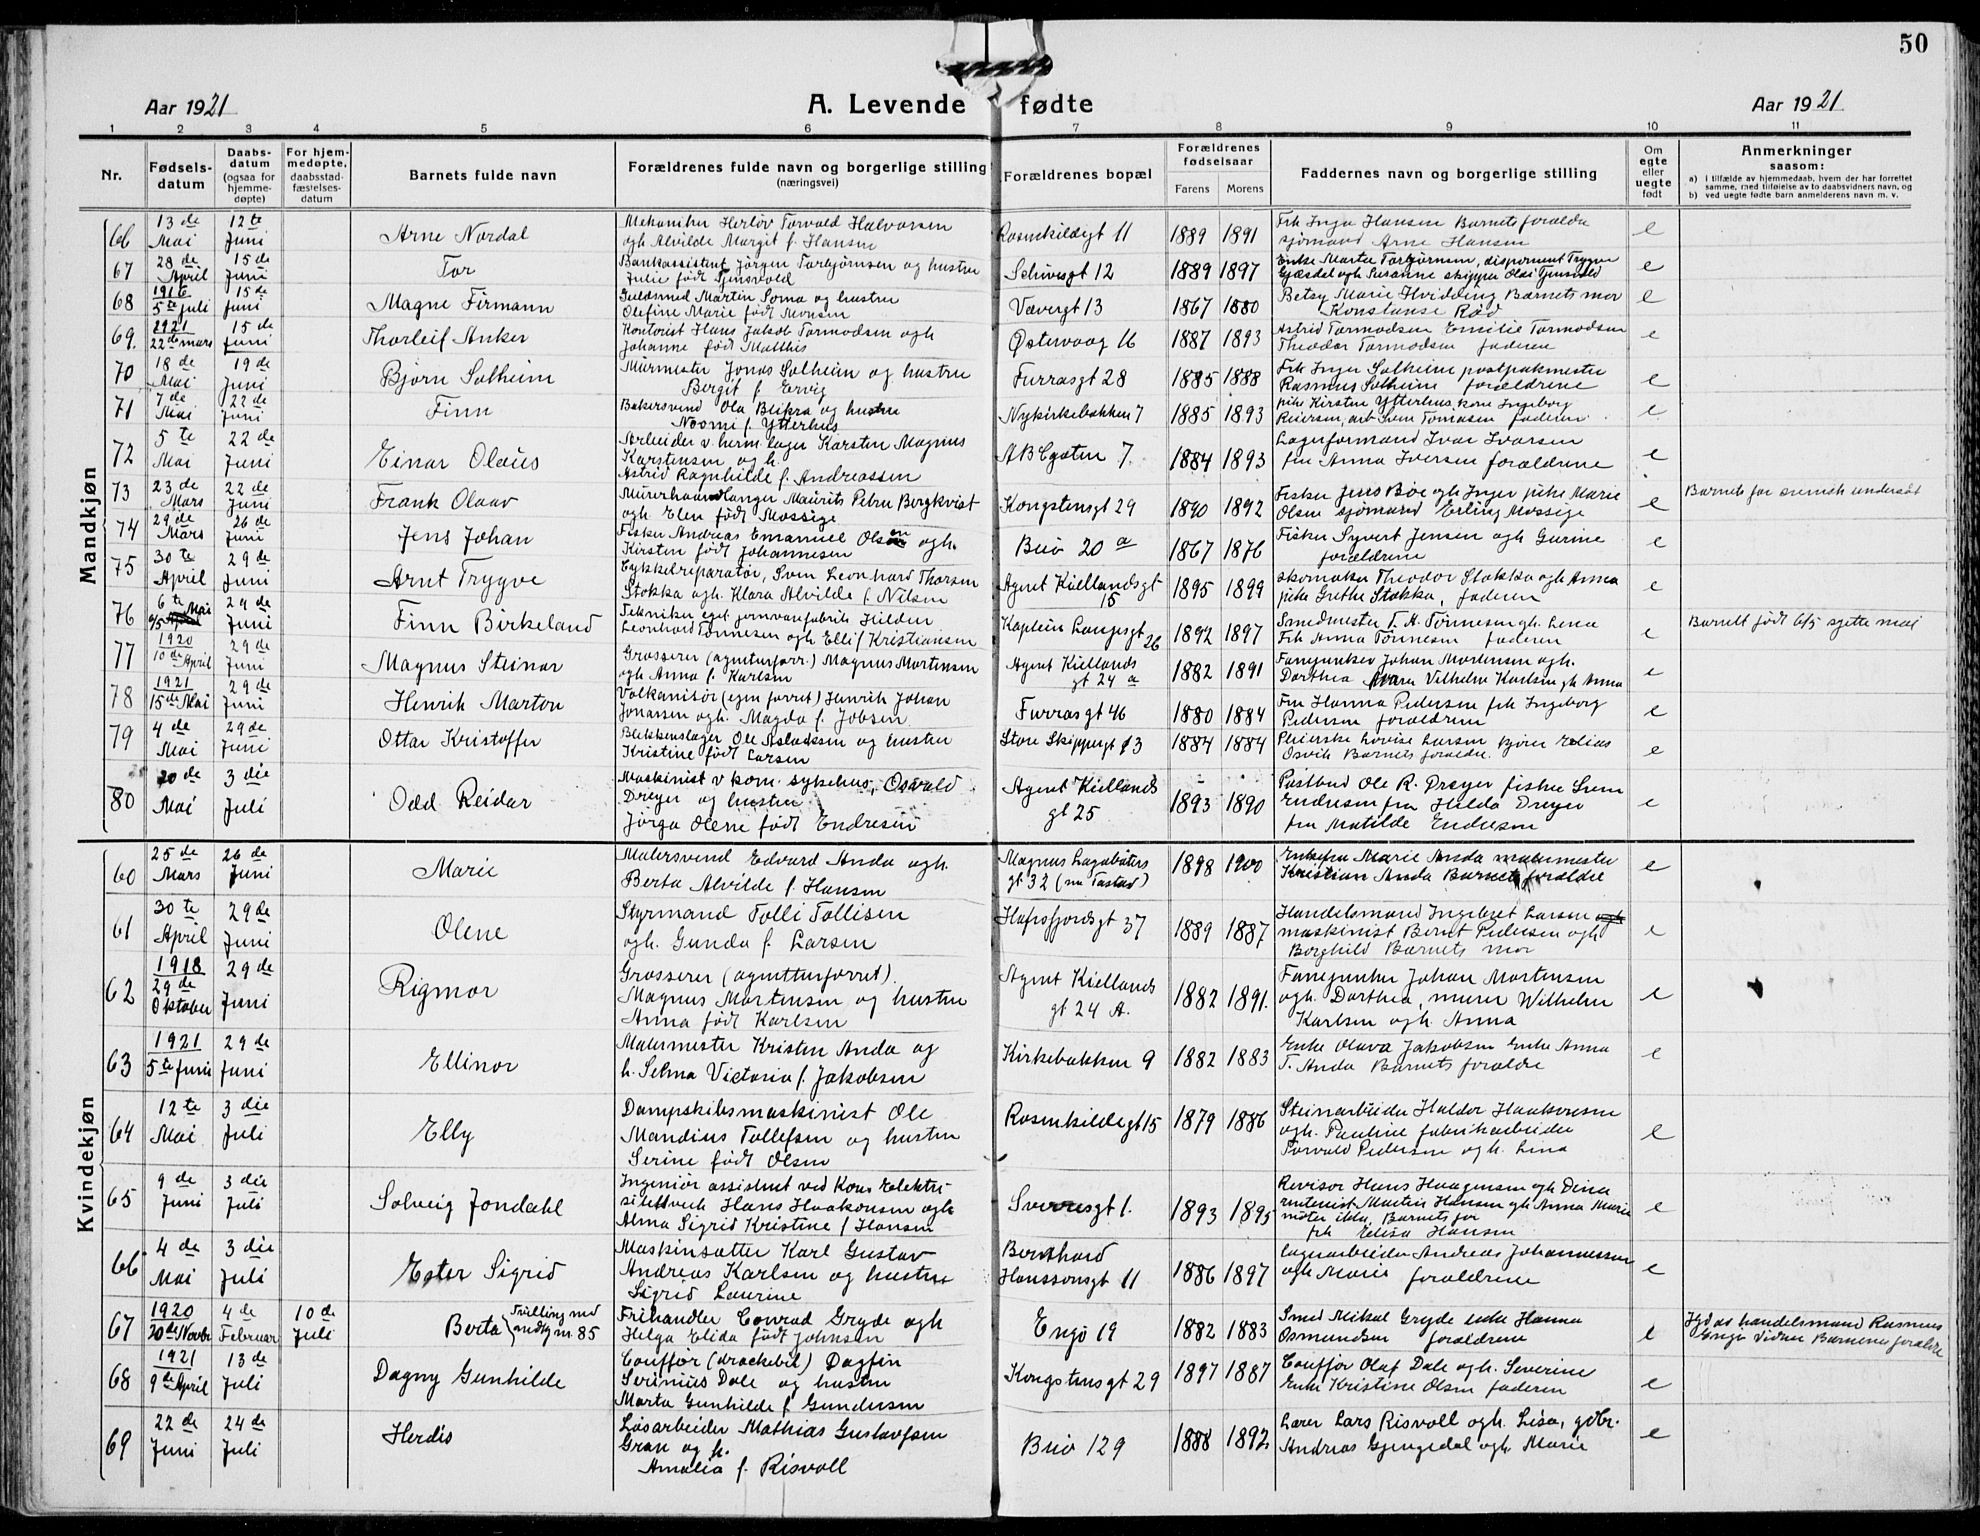 50
Aar 1921
A. Levende fødte
Aar 1921
1 2 3 4 5 6 7 8 9 10 11
Nr.
Fødsels-datum
Daabs-datum (ogsaa for hjemme-døpte)
For hjem-medøpte, daabsstad-fæstelses-datum
Barnets fulde navn
Forældrenes fulde navn og borgerlige stilling (næringsvei)
Forældrenes bopæl
Forældrenes fødselsaar
Farens Morens
Faddernes navn og borgerlige stilling
Om egte eller uegte født
Anmerkninger saasom:
a) I tilfælde av hjemmedaab, hvem der har forrettet samme, med tilføielse av to daabsvidners navn, og
b) ved uegte fødte barn anmelderens navn m. v.
Mandkjøn
66 13de Mai 12te Juni Arne Nordal
Mekaniker Herlöv Torvald Halvorsen
ogh Alvilde Margit f. Hansen
Rosenkildegt 11 1889 1891
Frk Inga Hansen Barnets forældre
sjømand Arne Hansen
e
67 28de April 15de Juni Tor
Bankassistent Jörgen Torbjörnsen og hustru
Julie født Tjensvold
Schivesgt 12 1889 1897
Enke Marte Torbjörnsen, disponent Trygve
Gjesdal ogh Susanne skipper Olai Tjensvold
e
68 1916 5te juli 15de Juni Magne Firmann
Guldsmed Martin Soma og hustru
Olefine Marie født Monsen
Vævergt 13 1867 1880
Betsy Marie Hvidding Barnets mor
Konstanse Rød
e
69. 1921 22de mars 15de Juni Thorleif Anker
Kontorist Hans Jakob Tormodsen ogh
Johanne født Matthis
Østervaag 16 1887 1893
Astrid Tormodsen Emilie Tormodsen
Theodor Tormodsen faderen
e
70 18de Mai 19de Juni Bjørn Solheim
Murmester Jonas Solheim og hustru
Bergit f. Ervig
Furrasgt 28 1885 1888
Frk Inger Solheim postpakmester
Rasmus Solheim forældrene
e
71 7de Mai 22de Juni Finn
Bakersvend Ola Blikra og hustru
Noomi f. Ytterhus
Nykirkebakken 7 1885 1893
pike Kirsten Ytterhus kone Ingeborg
Reiersen, arb Sven Tomasen faderen
e
72 5te Mai 22de Juni Einar Olaus
Arbeider v. herm. lager Karsten Magnus
Karstensen og h.
Astrid Ragnhilde f. Andreassen
ABCgaten 7. 1884 1893
Lagerformand Ivar Ivarsen
fru Anna Iversen forældrene
e
73 23de Mars 22de Juni Frank Olaav
Murerhaandlanger Maurits Petrus Bergkvist
ogh Elen født Mossige
Kongstensgt 29 1890 1892
Fisker Jens Böe ogh Inger pike Marie
Olsen sjømand Erling Mossige
e
Barnets far svensk undersåt
74 29de Mars 26de Juni Jens Johan
Fisker Andreas Emanuel Olsen ogh.
Kirsten født Johannesen
Buø 20 a 1867 1876
Fisker Syvert Jensen ogh Gurine
forældrene
e
75 30te April 29de Juni Arnt Trygve
Cykkelreparatør, Sven Leonhard Thorsen
Stokka ogh. Klara Alvilde f. Nilsen
Agent Kiellandsgt 15 1895 1899
skomaker Theodor Stokka ogh Anna
pike Grethe Stokka, faderen
e
76 6te 6/5 Mai 29de Juni Finn Birkeland
Tekniker eget jernvarefabrik Hilden
Leonhard Tönnesen ogh Elli f Kristiansen
Kaptein Langesgt 26 1892 1897
Smedmester T. A. Tönnesen gh. Lena
Frk Anna Tönnesen faderen
e
Barnet født 6/5 sjette mai
77 1920 10de April 29de Juni Magnus Steinar
Grosserer (agenturforr.) Magnus Mortensen
ogh Anna f. Karlsen
Agent Kiellands gt 24 a 1882 1891
Fanejunker Johan Mortensen ogh.
Dorthea Vilhelm Karlsen gh Anna
e
78 1921 15de Mai 29de Juni Henrik Marton
Volkanisör (egen forret) Henrik Johan
Jonassen ogh. Magda f. Jobsen
Furrasgt 46 1880 1884
Fru Hanna Pedersen frk Ingeborg
Pedersen forældrene
e
79 4de Mai 29de Juni Ottar Kristoffer
Blikkenslager Ole Aslaksen og hustru
Kristine født Larsen
Store Skippergt 13 1884 1884
Pleierske Lovise Larsen Björe Elias
Osvik Barnets forældre.
e
80 20de Mai 3die Juli Odd Reidar
Maskinist v kom. sykehus, Osvald
Dreyer og hustru
Jörga Olene født Endresen
Agent Kiellands gt 25 1893 1890
Postbud Ole R. Dreyer fisker Sven
Endresen fru Hilda Dreyer
fru Matilde Endresen
e
Kvindekjøn
60 25de Mars 26de Juni Marie
Malersvend Edvard Anda ogh.
Berta Alvilde f. Hansen
Magnus Lagabøters gt 32 (nu Tastad) 1898 1900
Enkefru Marie Anda malermester
Kristian Anda Barnets forældre
e
61 30te April 29de Juni Olene
Styrmand Tolli Tollisen
ogh. Gunda f. Larsen
Hafrsfjordsgt 37 1889 1887
Handelsmand Ingebret Larsen ogh
maskinist Bernt Pedersen ogh
Borghild Barnets mor
e
62 1918 29de Oktober 29de Juni Rigmor
Grosserer (agenturforret).
Magnus Mortensen og hustru
Anna født Karlsen
Agent Kiellands gt 24 A. 1882 1891.
Fanejunker Johan Mortensen
ogh. Dorthea, murer Wilhelm
Karlsen ogh. Anna
e
63 1921 5te Juni 29de Juni Ellinor
Malermester Kristen Anda og
h. Selma Victoria f. Jakobsen
Kirkebakken 9 1882 1883
Enke Olava Jakobsen Enke Anna
T. Anda Barnets forældre
e
64 12te Mai 3die Juli Elly
Dampskibsmaskinist Ole
Mandius Tollefsen og hustru
Serine født Olsen
Rosenkildegt 15 1879 1886
Steinarbeider Haldor Haakonsen
ogh. Pauline fabrikarbeider
Torvald Pedersen ogh. Lina
e
65 9de Juni 3die Juli Solveig Jondahl
Ingeniör assistent ved Kom Elektri-
sitetsverk Hans Haakonsen ogh
Alma Sigrid Kristine f Hansen
Sverresgt 1. 1893 1895
Revisor Hans Haagensen ogh Dina
rutenist Martin Hansen ogh Anna Marie
Barnets far
frk Elisa Hansen
e
66 4de Mai 3die Juli Ester Sigrid
Maskinsætter Karl Gustav
Andreas Karlsen og hustru
Sigrid Laurine
Bernhard Hanssonsgt 11 1886 1897
Lagerarbeider Andreas Johannessen
ogh Marie forældrene
e
67 1920 20de Novbr 4de Februar 10de Juli Berta (Tvilling med nedtg nr. 85
Frihandler Conrad Gryde ogh
Helga Elida født Johnsen
Engö 19 1882 1883
Smed Mikal Gryde enke Hanna
Osmundsen forældrene
e
Hjd av handelsmand Rasmus
Engø Vidner Barnenes forældre
68 1921 9de April 13de Juli Dagny Gunhilde
Couffør (drockebil) Dagfin
Serinius Dale og hustru
Marta Gunhilde f. Gundersen
Kongstensgt 29 1897 1887
Couffør Olaf Dale ogh. Severine
Enke Kristine Olsen faderen
e
69 22de Juni 24de Juli Herdis
Løsarbeider Mathias Gustavsen
Gran og h.
Amalia f. Risvoll
Buø 129 1888 1892
Lærer Lars Risvoll ogh. Lisa, gdbr.
Andreas Gjengedal ogh Marie
e